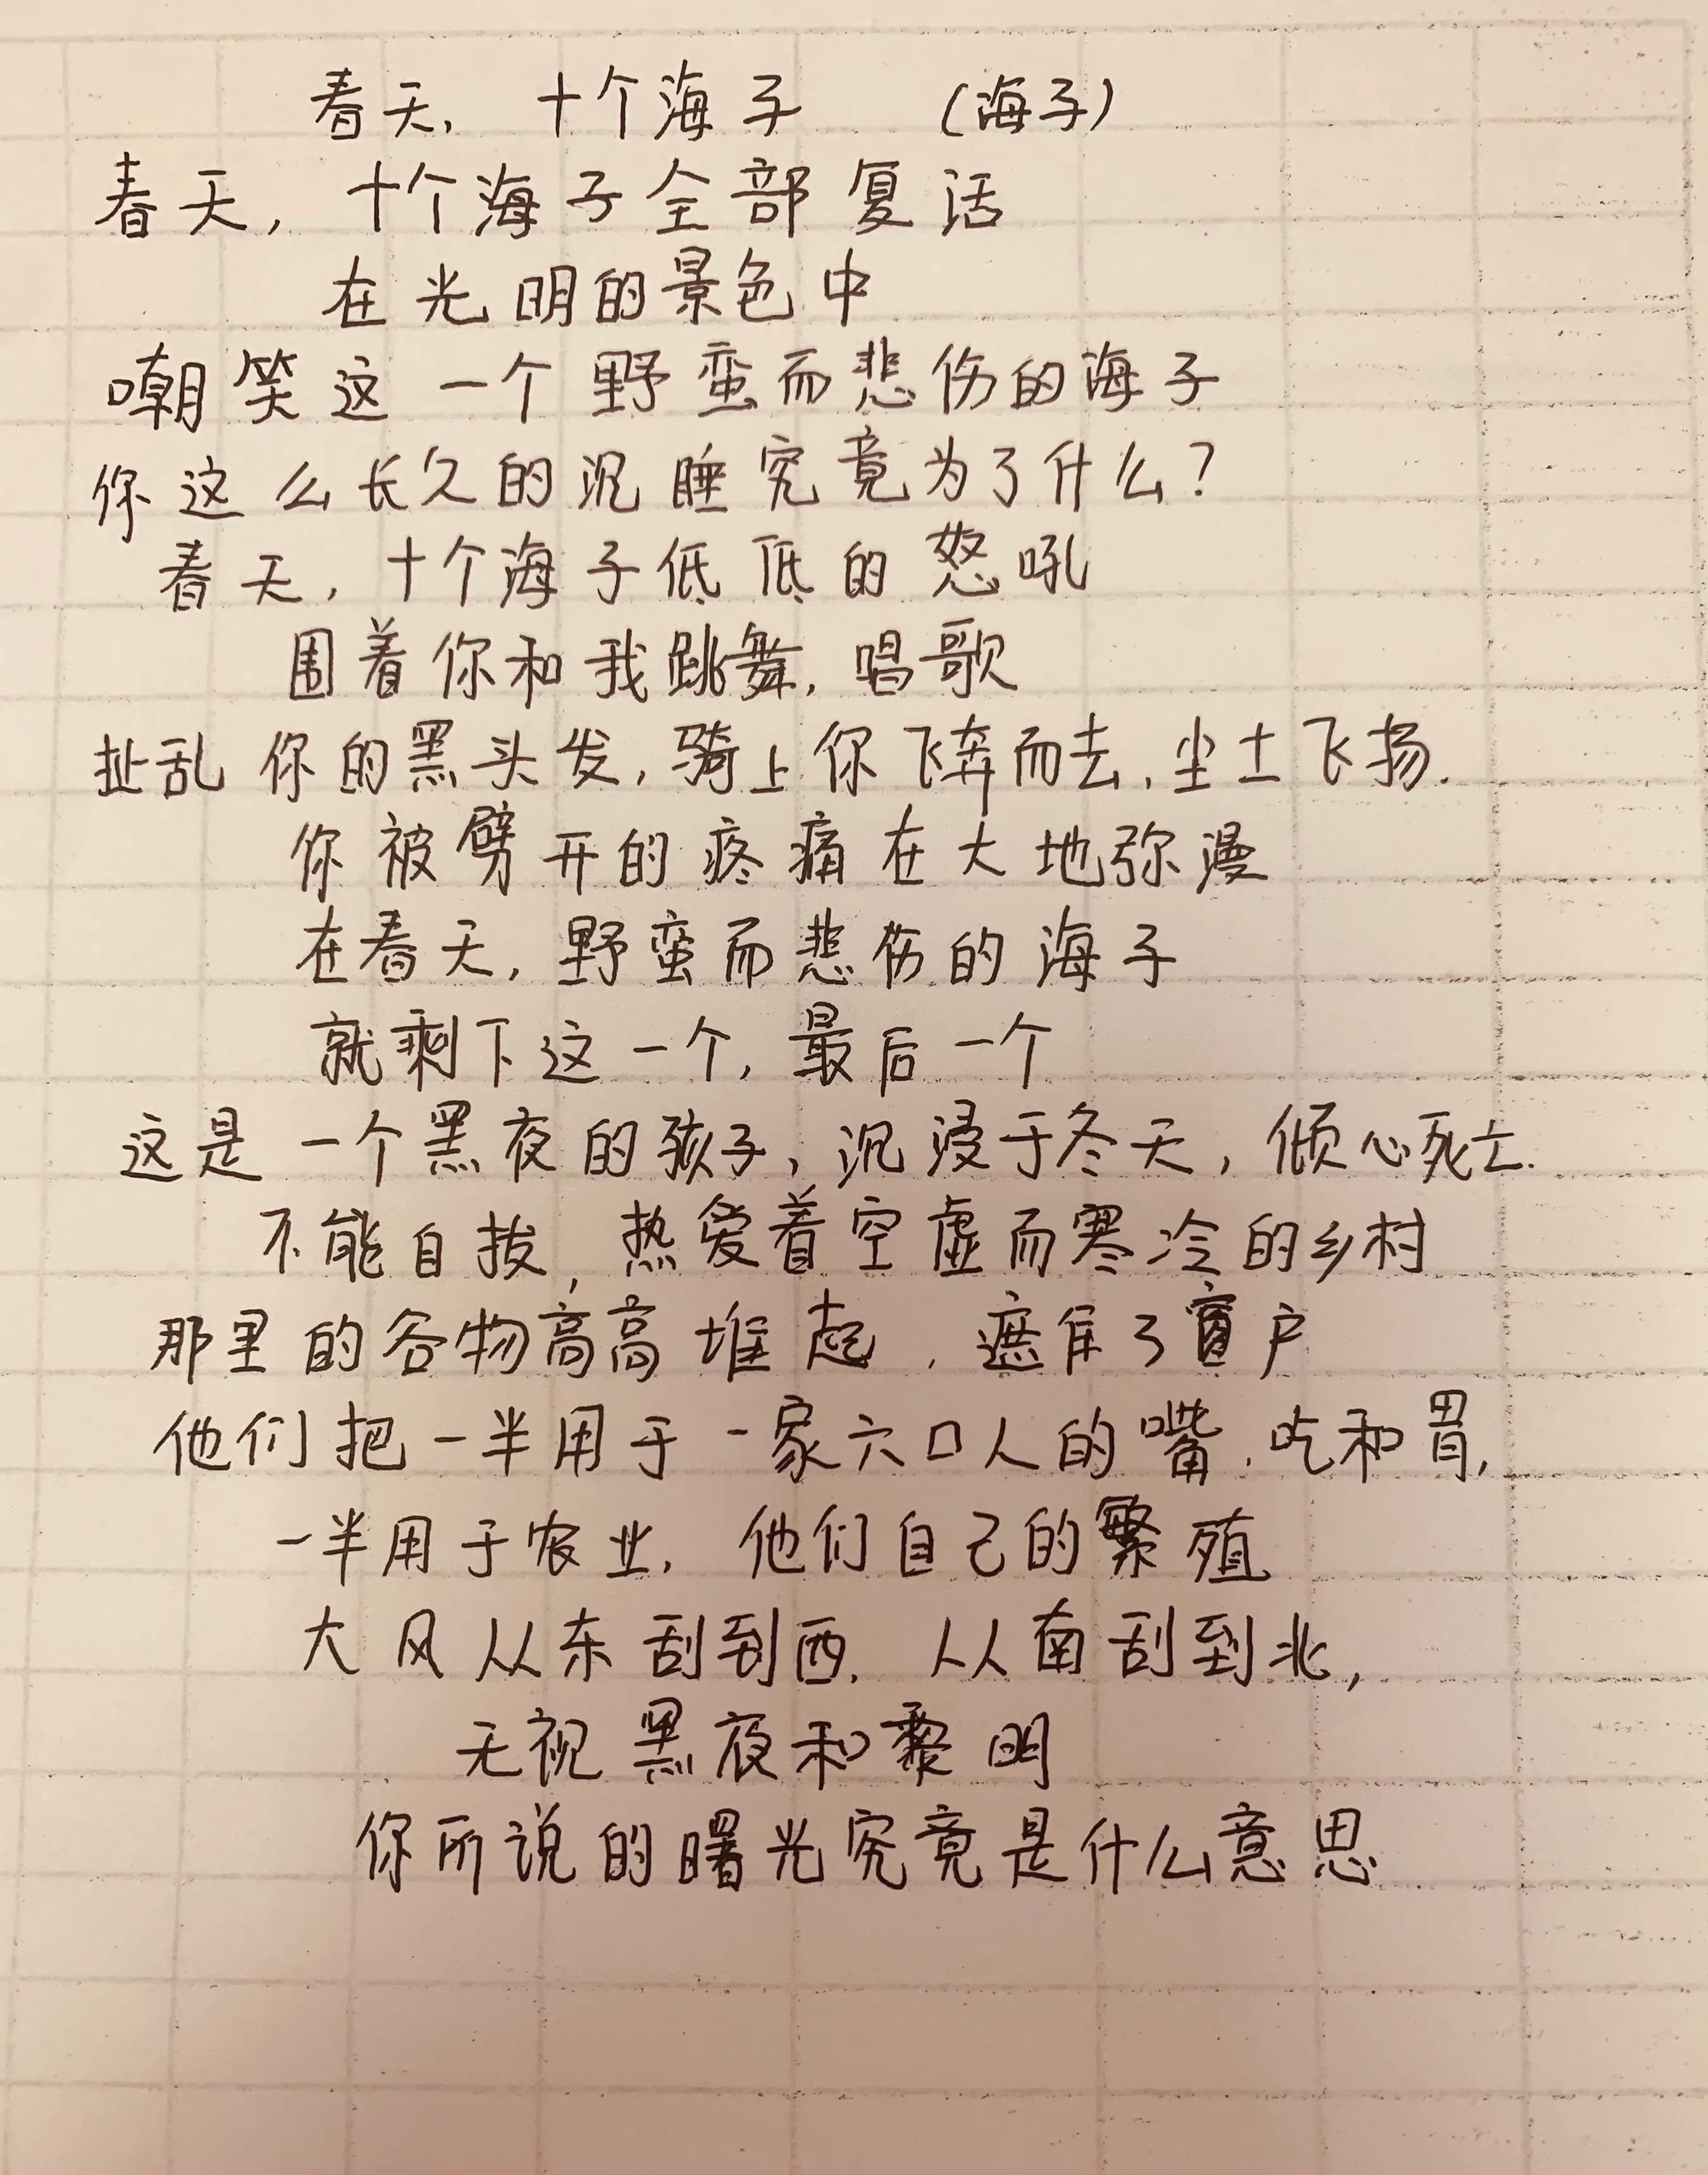 春天，十个海子 （海子）
春天，十个海子全部复活
在光明的景色中
嘲笑这一个野蛮而悲伤的海子
你这么长久的沉睡究竟为了什么？
春天，十个海子低低的怒吼
围着你和我跳舞，唱歌
扯乱你的黑头发，骑上你飞奔而去，尘土飞扬.
你被劈开的疼痛在大地弥漫
在春天，野蛮而悲伤的海子
就剩下这一个，最后一个
这是一个黑夜的孩子，沉浸于冬天，倾心死亡.
不能自拔，热爱着空虚而寒冷的乡村
那里的谷物高高堆起，遮住了窗户
他们把一半用于一家六口人的嘴，吃和胃，
一半用于农业，他们自己的繁殖
大风从东刮到西，从南刮到北，
无视黑夜和黎明
你所说的曙光究竟是什么意思